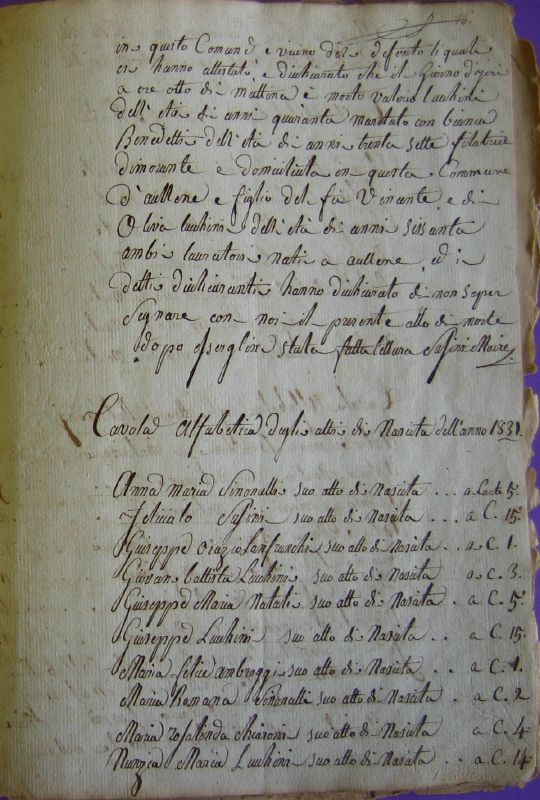 16.
in questo Comune e vicino del defonto li quali
ci hanno attestato, e dichiarato che il Giorno d'ieri
a ore otto di mattina è morto Valerio Lucchini
dell'età di anni quaranta maritato con bianca
Benedetti dell'età di anni trenta sette filatrice
dimorante e domiciliata in questa Commune
d'aullene e figlio del fù Vincente e di
Oliva Lucchini dell'età di anni sissanta
ambi lavoratori nati a aullene, ed i
detti dichiaranti hanno dichiarato di non saper
Segnare con noi il presente atto di morte
dopo esserglini stata fatta lettura Safini Maire
Tavola Alfabetica degli atti di Nascita dell'anno 1831.
Anna Maria Simonelli suo atto di Nascita ... a Carta 5.
Safini suo atto di Nascita ... a C. 15.
Giuseppe Orazio Lanfranchi suo atto di Nascita .. a C. 1.
Giovan Battista Lucchini suo atto di Nascita a C. 3.
Giuseppe Maria Natali suo atto di Nascita . a C. 5.
Giuseppe Lucchini suo atto di Nascita .. a C. 15.
Maria Felice ambroggi suo atto di Nascita .. a C. 1.
Maria Romana Simonelli suo atto di Nascita . a C. 2
Maria rosalinda Chiaroni suo atto di Nascita a C. 4
Nunzia Maria Lucchini suo atto di Nascita .. a C. 14